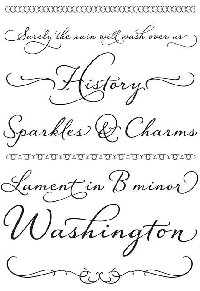 Surely the rain will wash over us
History
Sparkles & Charms
Lament in B minor
Washington